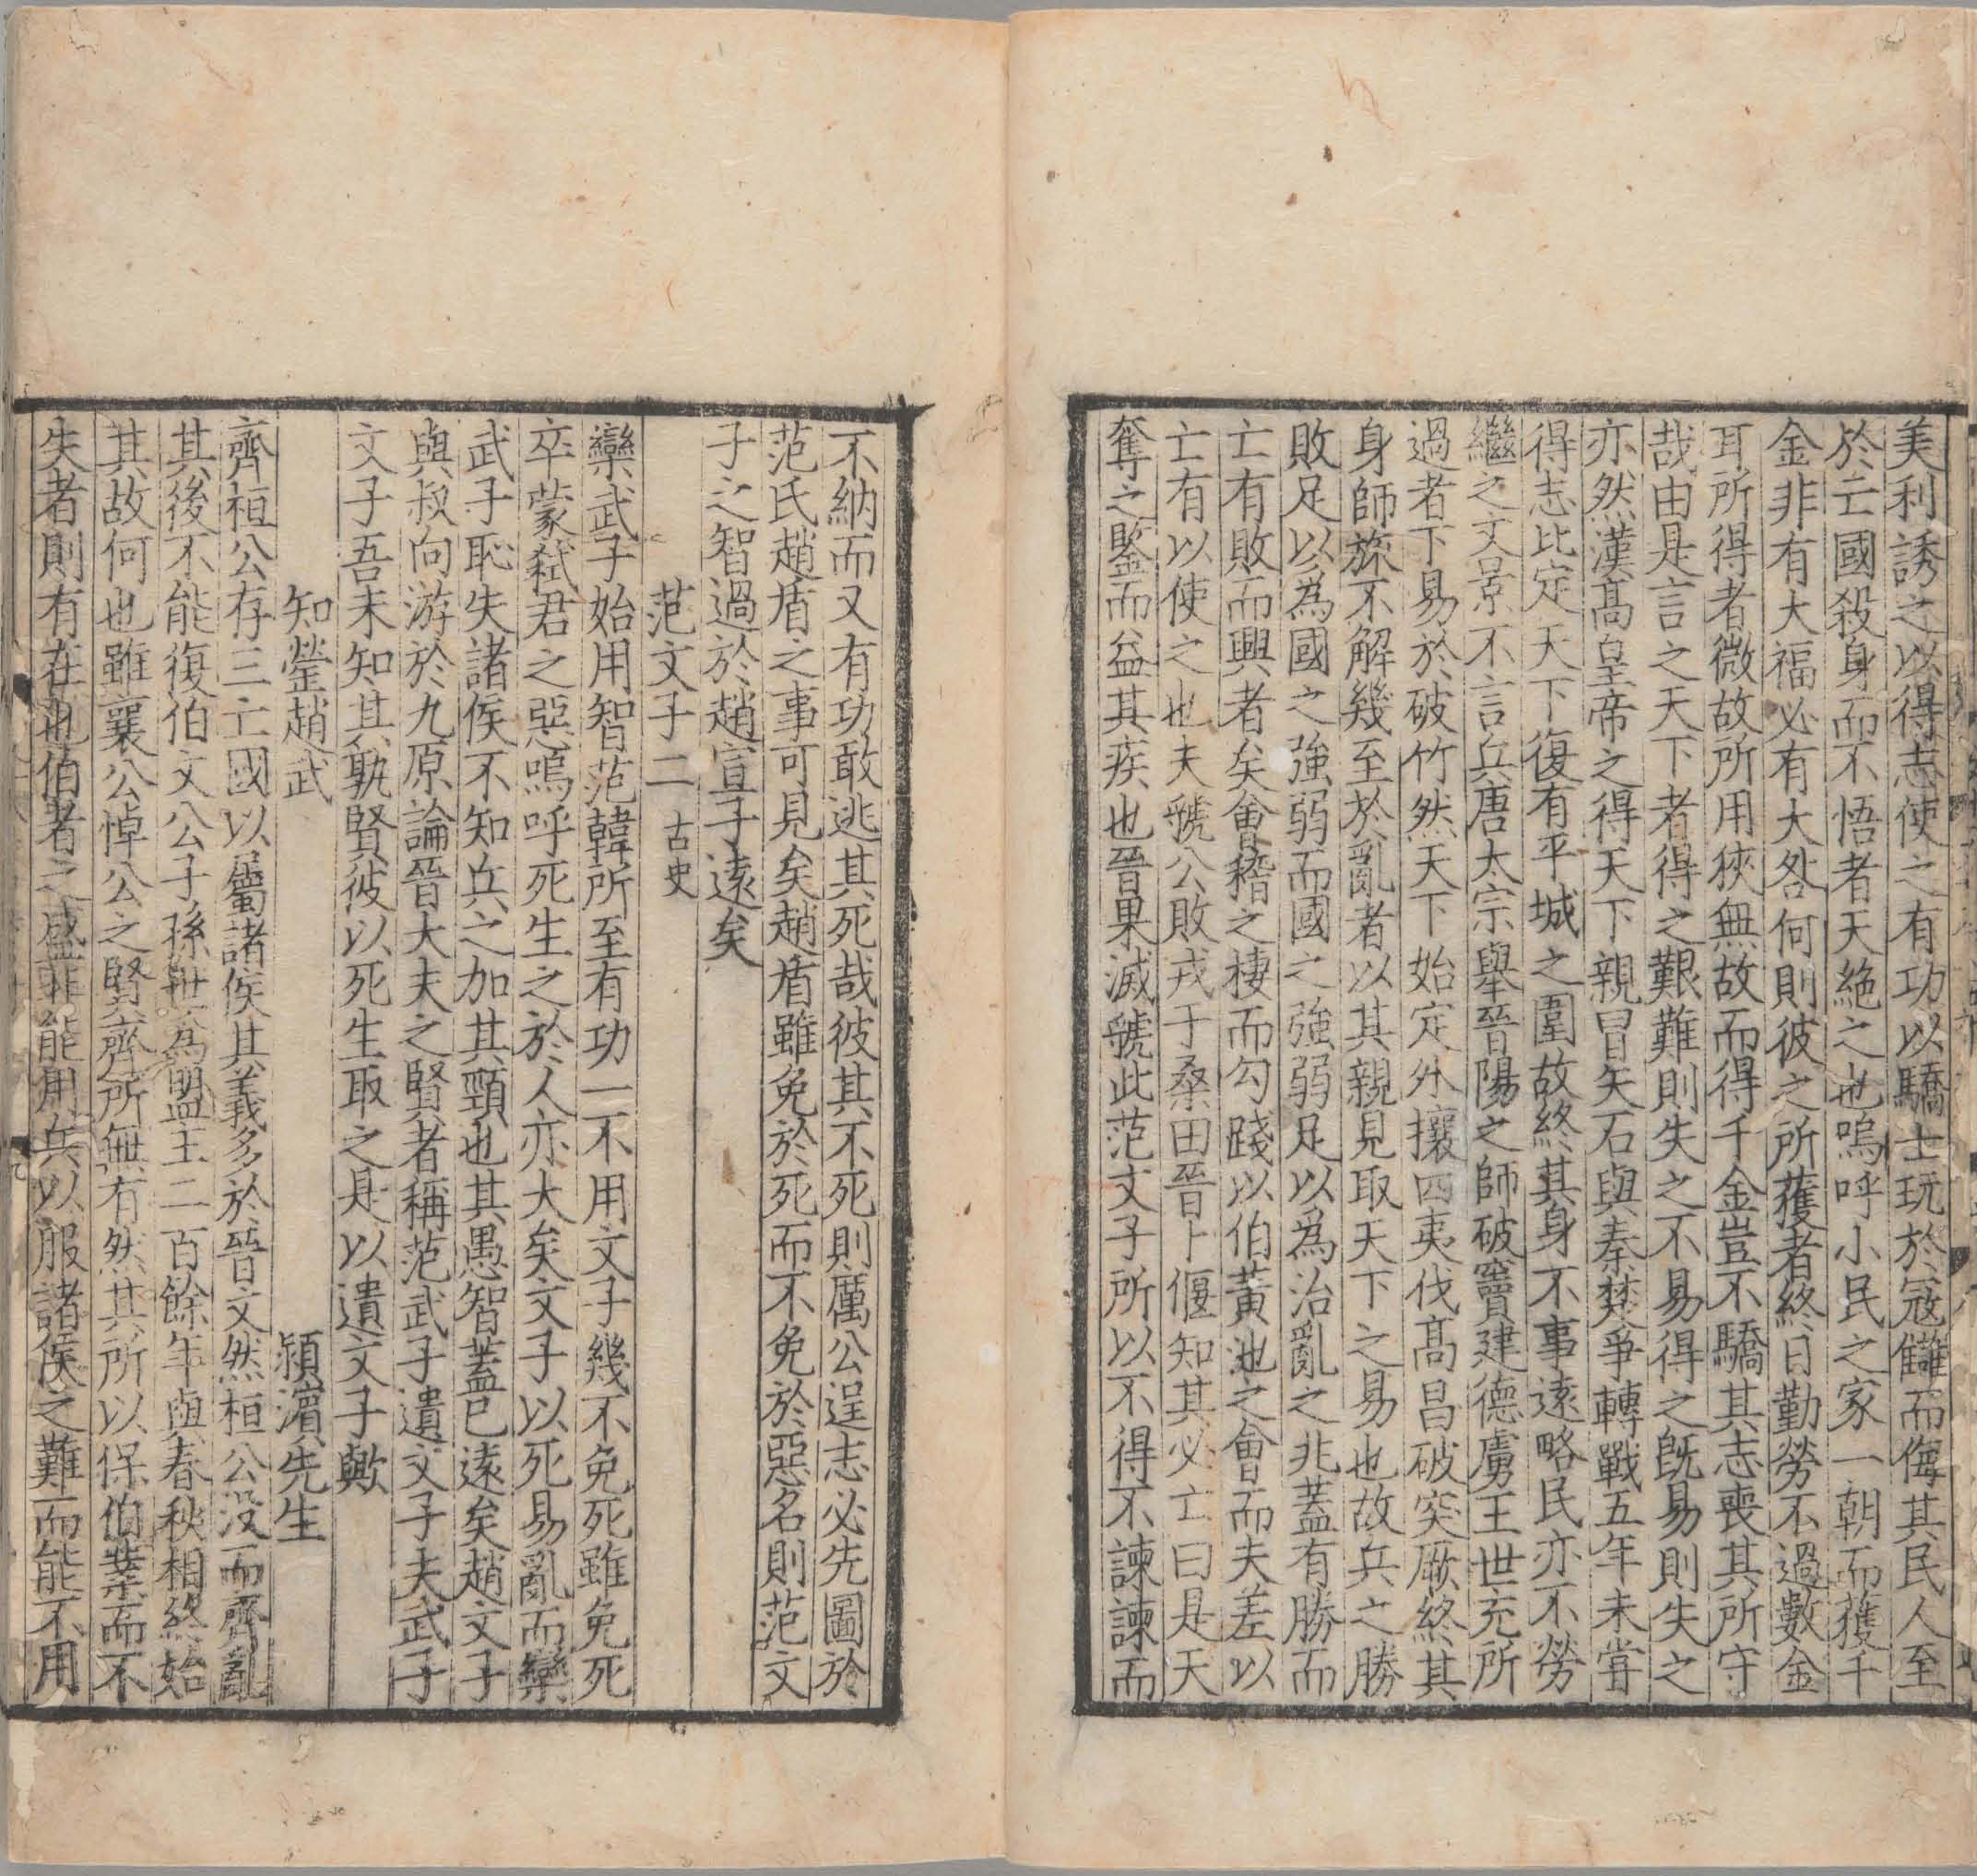 美利誘之以得志使之有功以驕士玩於冦讎而侮其民人至
於亡國殺身而不悟者天絶之也嗚呼小民之家一朝而獲千
金非有大福必有大咎何則彼之所獲者終日勤勞不過數金
耳所得者微故所用狹無故而得千金豈不驕其志喪其所守
哉由是言之天下者得之艱難則失之不易得之既易則失之
亦然漢髙皇帝之得天下親冒矢石與秦楚爭轉戰五年未甞
得志比定天下復有平城之圍故終其身不事逺略民亦不勞
繼之文景不言兵唐太宗舉晉陽之師破竇建德虜王世充所
過者下易於破竹然天下始定外攘四夷伐髙昌破突厥終其
身師旅不解幾至於亂者以其親見取天下之易也故兵之勝
敗足以為國之強弱而國之強弱足以為治亂之兆蓋有勝而
亡有敗而興者矣會稽之棲而勾踐以伯黃池之會而夫差以
亡有以使之也夫虢公敗戎于桑田晉卜偃知其必亡曰是天
奪之鑒而益其疾也晉果滅虢此范文子所以不得不諫諫而
不納而又有功敢逃其死哉彼其不死則厲公逞志必先圖於
范氏趙盾之事可見矣趙盾雖免於死而不免於惡名則范文
子之智過於趙宣子逺矣
范文子二 古史
欒武子始用智范韓所至有功一不用文子幾不免死雖免死
卒蒙弑君之惡嗚呼死生之於人亦大矣文子以死易亂而欒
武子恥失諸侯不知兵之加其頸也其愚智蓋已逺矣趙文子
與叔向游於九原論晉大夫之賢者稱范武子遺文子夫武子
文子吾未知其孰賢彼以死生取之是以遺文子歟
知罃趙武 潁濵先生
齊桓公存三亡國以屬諸侯其義多於晉文然桓公没而齊亂
其後不能復伯文公子孫世為盟主二百餘年與春秋相終始
其故何也雖襄公悼公之賢齊所無有然其所以保伯業而不
失者則有在也伯者之盛非能用兵以服諸侯之難而能不用